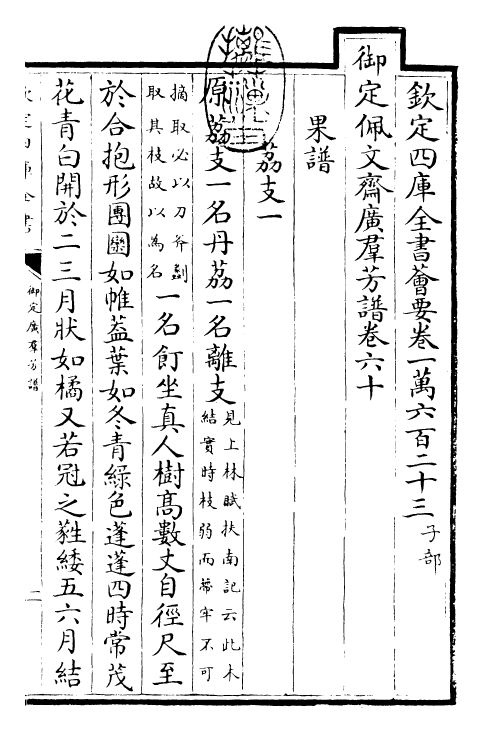 欽定四庫全書薈要卷一萬六百二十三 子部
御定佩文齋廣羣芳譜卷六十
果譜
荔支一
原荔支一名丹荔一名離支 見上林賦扶南記云此木
結實時枝弱而蒂牢不可
摘取必以刀斧劙
取其枝故以為名
一名飣坐真人樹髙數丈自徑尺至
於合抱形團圞如帷蓋葉如冬青緑色蓬蓬四時常茂
花青白開於二三月狀如橘又若冠之蕤緌五六月結
欽定四庫全書
御定廣羣芳譜